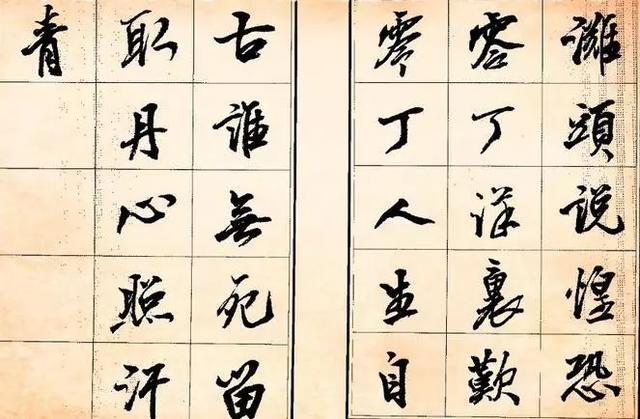 灘頭説惶恐
零丁洋裏歎
零丁人生自
古誰無死留
取丹心照汗
青